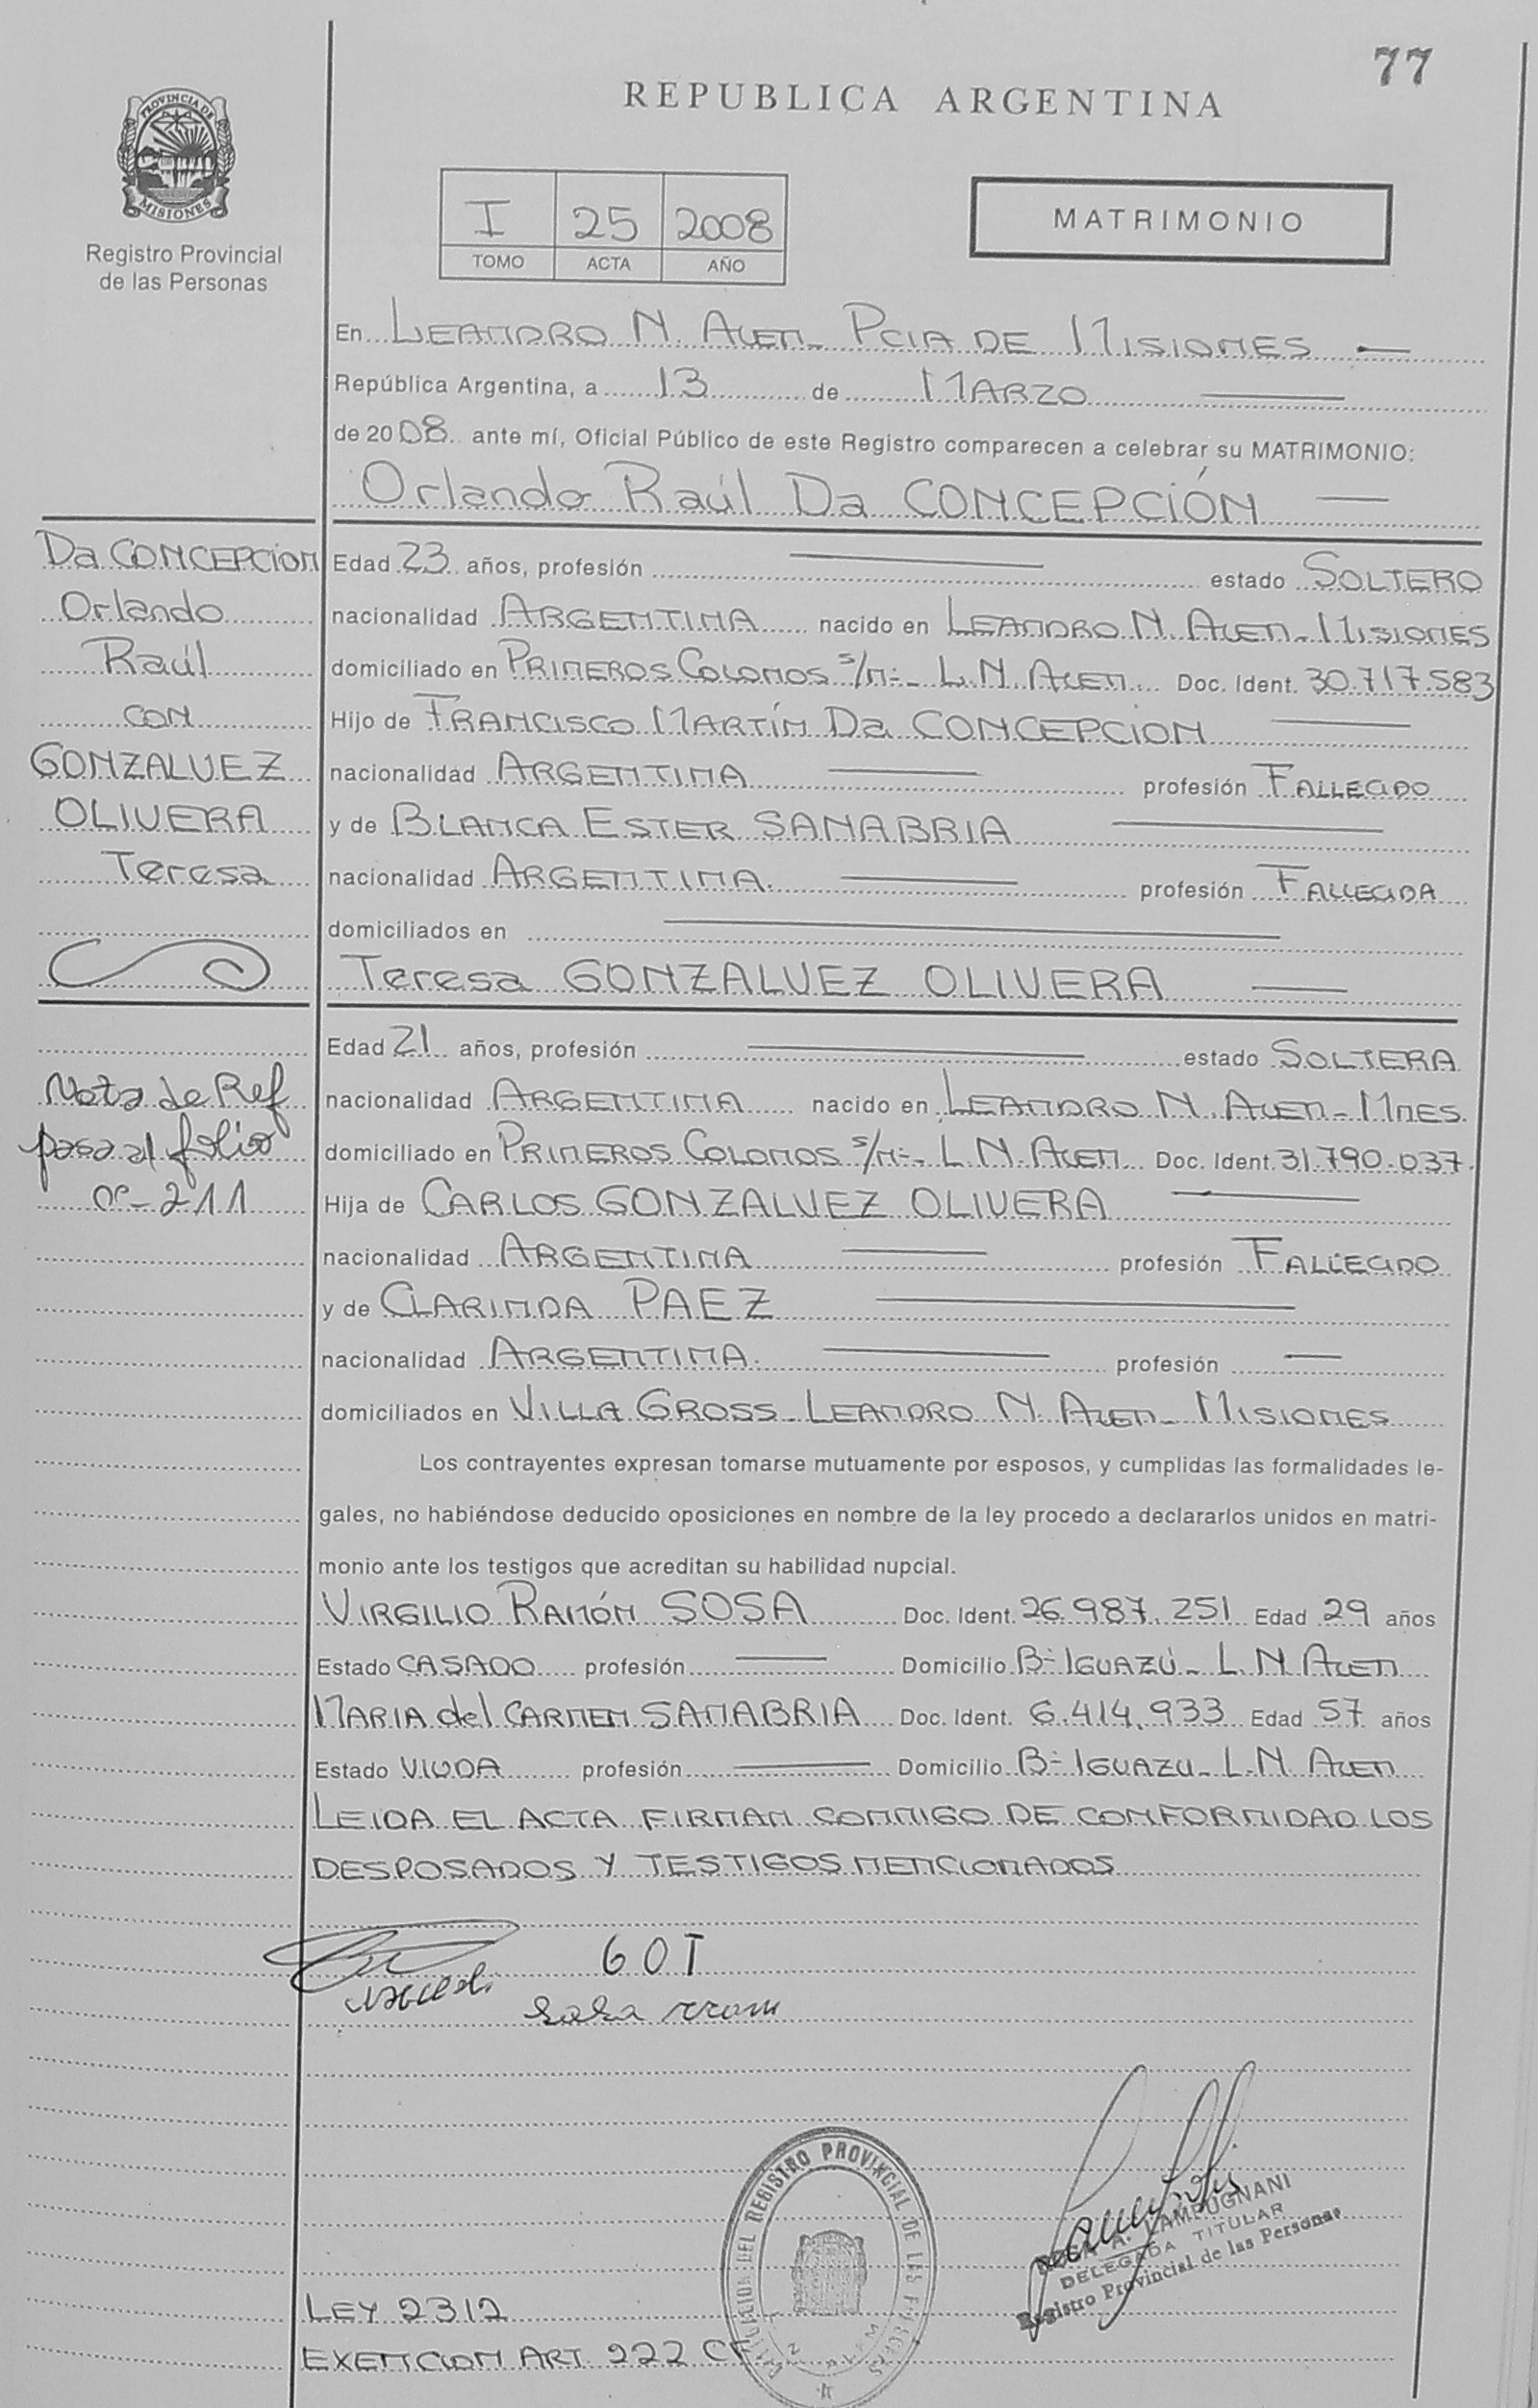 77
REPUBLICA ARGENTINA
PROVINCIA DE
MISIONES
Registro Provincial
de las Personas
I 25 2008
TOMO ACTA AÑO
MATRIMONIO
En LEANDRO N. ALEM_ PCIA DE MISIONES
República Argentina, a 13 de MARZO
de 2008 ante mí, Oficial Público de este Registro comparecen a celebrar su MATRIMONIO:
Orlando Raúl Da CONCEPCIÓN
Da CONCEPCION
Orlando
Raúl
con
GONZALVEZ
OLIVERA
Teresa
Edad 23 años, profesión estado SOLTERO
nacionalidad ARGENTINA nacido en LEANDRO N. ALEM_ MISIONES
domiciliado en PRIMEROS COLONOS s/n-_ L.N. ALEM Doc. Ident. 30.717.583
Hijo de FRANCISCO MARTÍN Da CONCEPCION
nacionalidad ARGENTINA profesión FALLECIDO
y de BLANCA ESTER SANABRIA
nacionalidad ARGENTINA. profesión FALLECIDA
domiciliados en
Teresa GONZALVEZ OLIVERA
Nota de Ref
pasa al folio
nº-211
Edad 21 años, profesión estado SOLTERA
nacionalidad ARGENTINA nacido en LEANDRO N. ALEM_ MNES.
domiciliado en PRIMEROS COLONOS s/n-_ L N. ALEM Doc. Ident. 31.790.037.
Hija de CARLOS GONZALVEZ OLIVERA
nacionalidad ARGENTINA profesión FALLECIDO
y de CLARINDA PAEZ
nacionalidad ARGENTINA. profesión
domiciliados en VILLA GROSS_ LEANDRO N. ALEM_ MISIONES
Los contrayentes expresan tomarse mutuamente por esposos, y cumplidas las formalidades le-
gales, no habiéndose deducido oposiciones en nombre de la ley procedo a declararlos unidos en matri-
monio ante los testigos que acreditan su habilidad nupcial.
VIRGILIO RAMÓN SOSA Doc. Ident. 26.987.251 Edad 29 años
Estado CASADO profesión Domicilio Bº IGUAZÚ_ L.N. ALEM
MARIA del CARMEN SANABRIA Doc. Ident. 6.414.933 Edad 57 años
Estado VIUDA profesión Domicilio Bº IGUAZU_ L.N. ALEM
LEIDA EL ACTA FIRMAN CONMIGO DE CONFORMIDAD LOS
DESPOSADOS Y TESTIGOS MENCIONADOS
GOT
DEL REGISTRO PROVINCIAL DE LAS
A. LAMPUGNANI
DELEGADA TITULAR
Registro Provincial de las Personas
LEY 2312
EXENCION ART. 222 CF